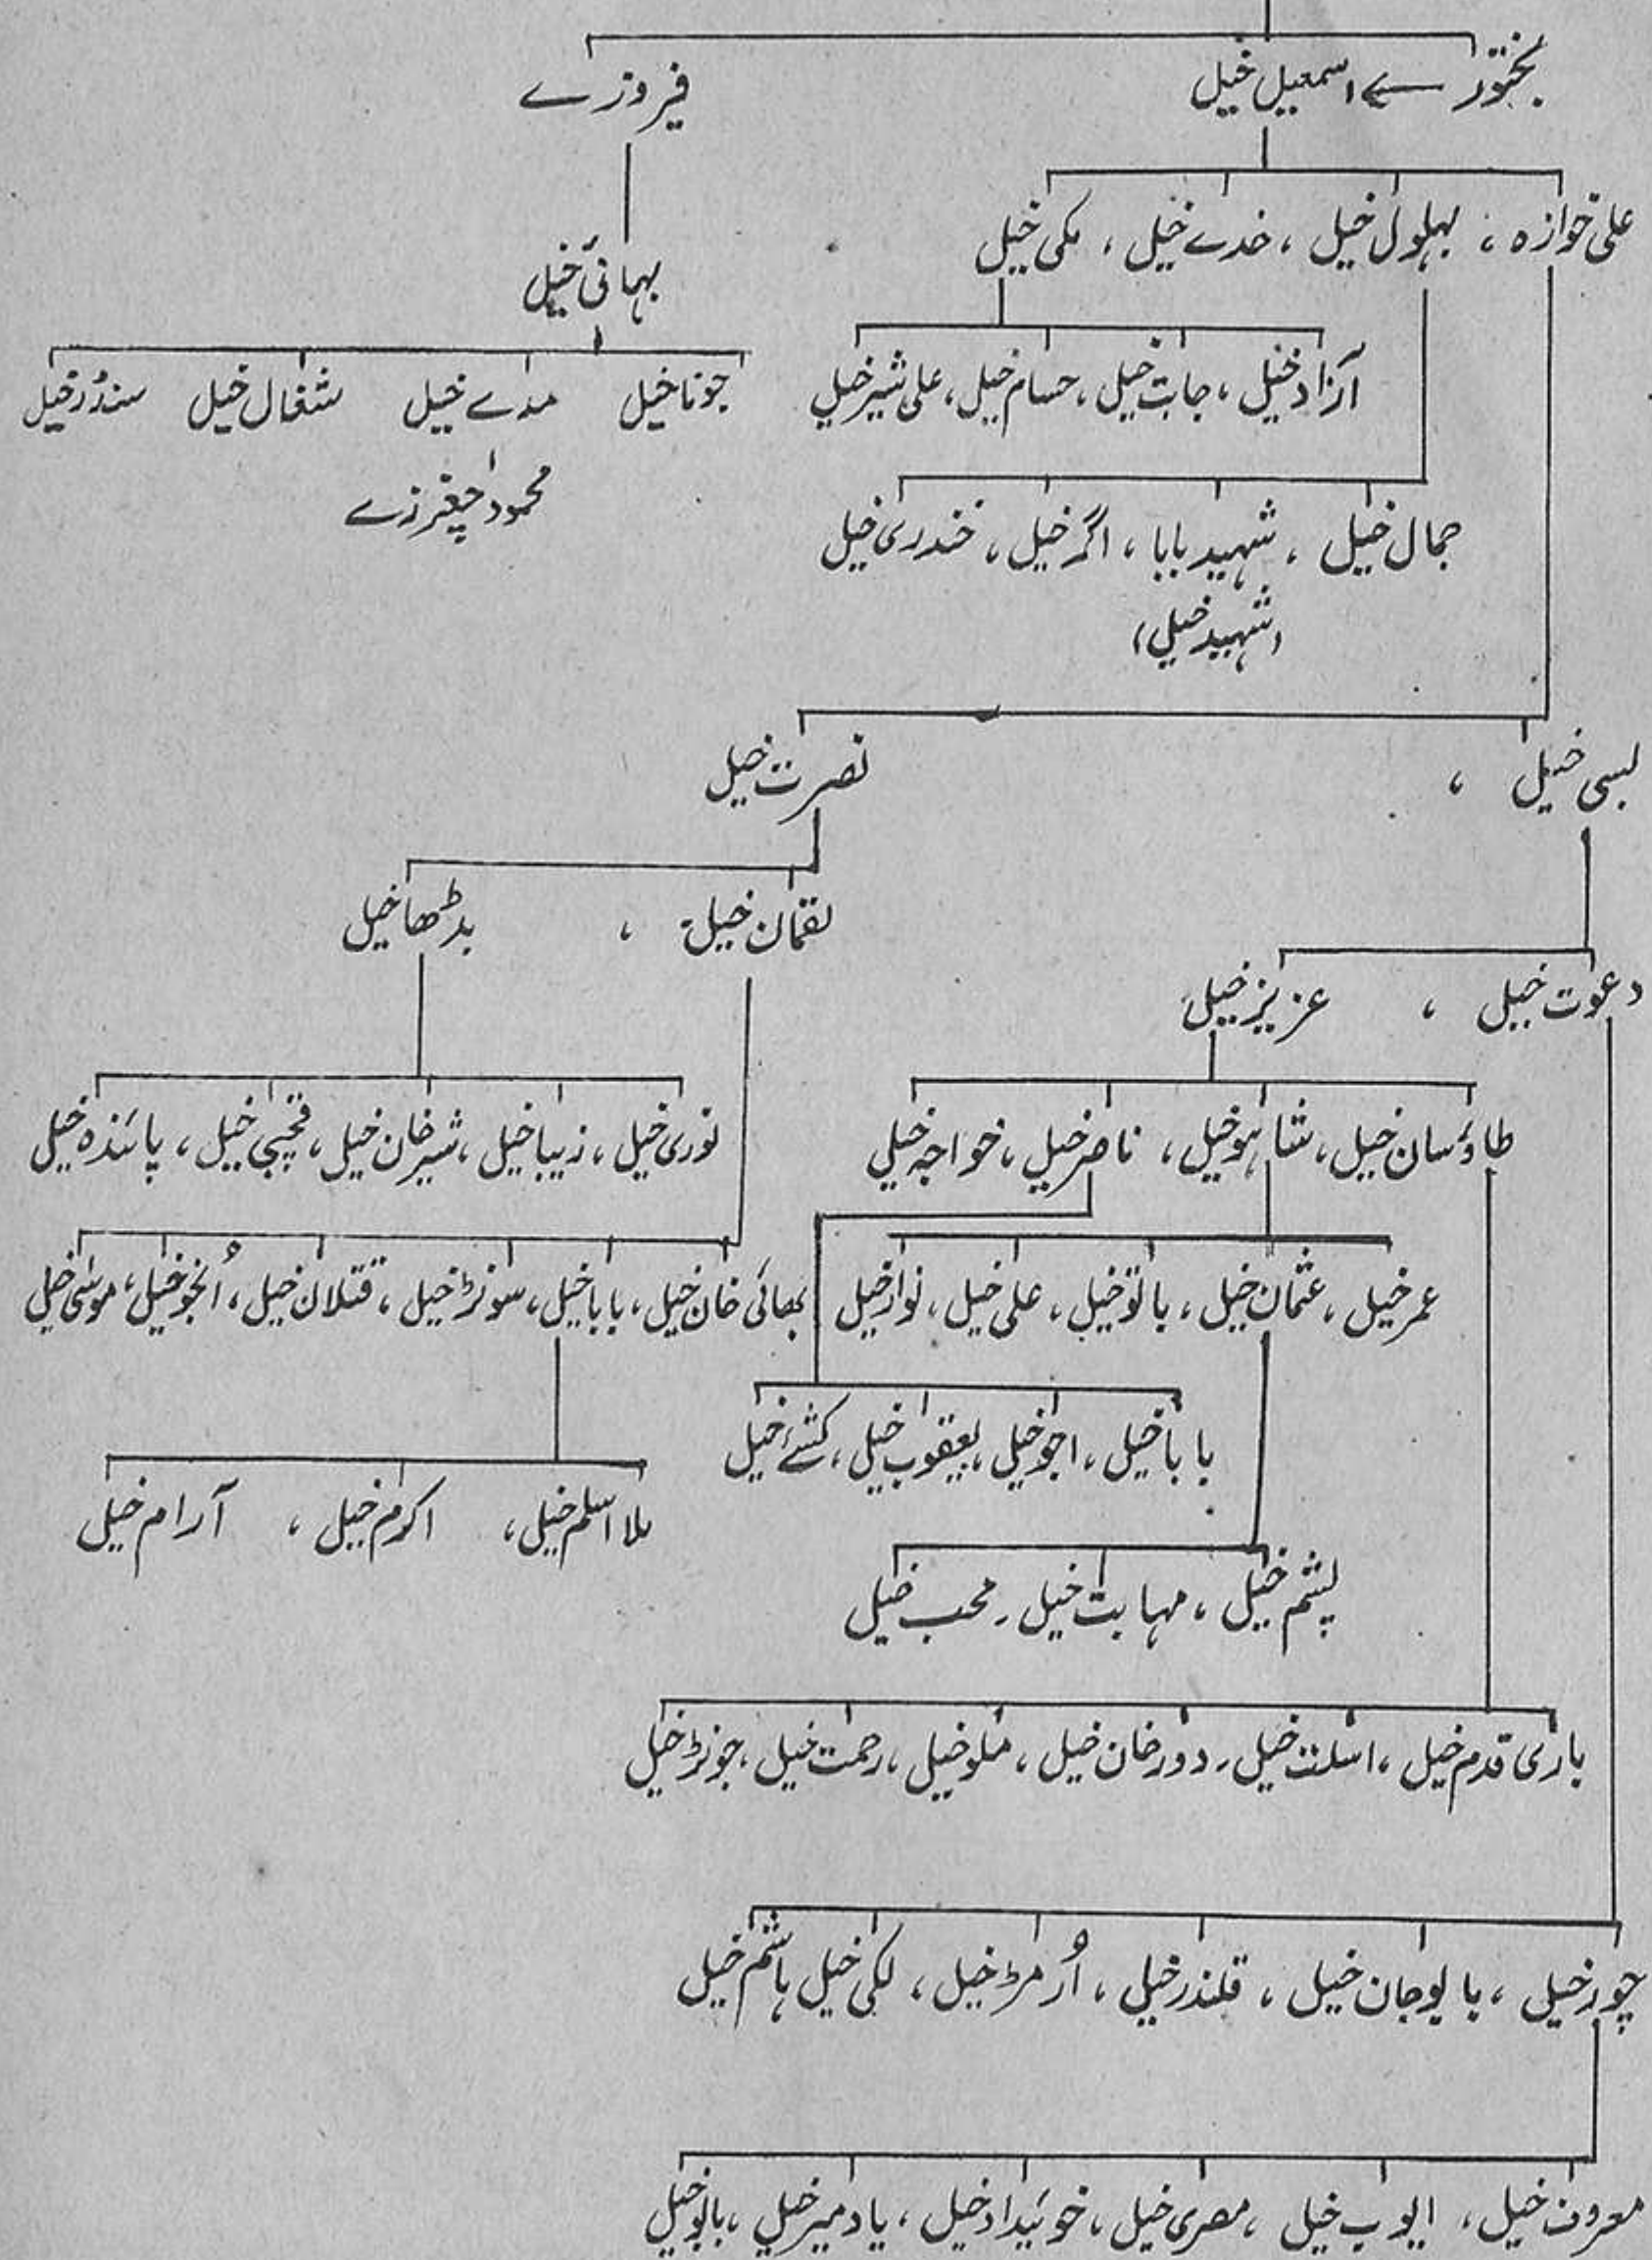 بختور ← اسمعیل خیل  فیروزے
علی خوازہ ، بہلول خیل ، خدے خیل ، مکی خیل
بہائی خیل
آزاد خیل ، جابت خیل ، حسام خیل ، علی شیر خیل
جونا خیل  مدے خیل  شغال خیل  سنڈر خیل
محمود چغرزے
جمال خیل ، شہید بابا ، اگر خیل ، خندری خیل
(شہید خیل)
لبسی خیل ،  نصرت خیل
لقمان خیل ،  بڈھا خیل
دعوت خیل ،  عزیز خیل
طاؤسان خیل ، شاہو خیل ، ناصر خیل ، خواجہ خیل
نوری خیل ، زیبا خیل ، شیر خان خیل ، فتحجی خیل ، پائندہ خیل
عمر خیل ، عثمان خیل ، بالو خیل ، علی خیل ، نواز خیل
بھائی خان خیل ، بابا خیل ، سونڑ خیل ، قتلان خیل ، اُنجو خیل ، موسٰی خیل
بابا خیل ، اجو خیل ، یعقوب خیل ، کشے خیل
ملا اسلم خیل ، اکرم خیل ، آرام خیل
پشم خیل ، مہابت خیل ۔ محب خیل
باری قدم خیل ، اسلت خیل ۔ دور خان خیل ، ملو خیل ، رحمت خیل ، جونڑ خیل
چوڑ خیل ، بالو جان خیل ، قلندر خیل ، اُرمڑ خیل ، لکی خیل ہاشم خیل
معروف خیل ، ایوب خیل ، مصری خیل ، خوئیداد خیل ، یاد میر خیل ، بالو خیل